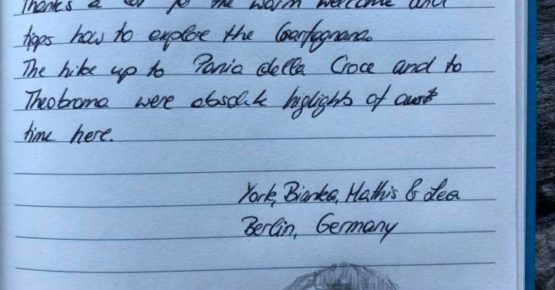 Thanks a lot for the warm welcome and
tipps how to explore the Garfagnana.
The hike up to Pania della Croce and to
Theobroma were absolute higlights of our
time here.
York, Bianka, Mathis & Lea
Berlin, Germany